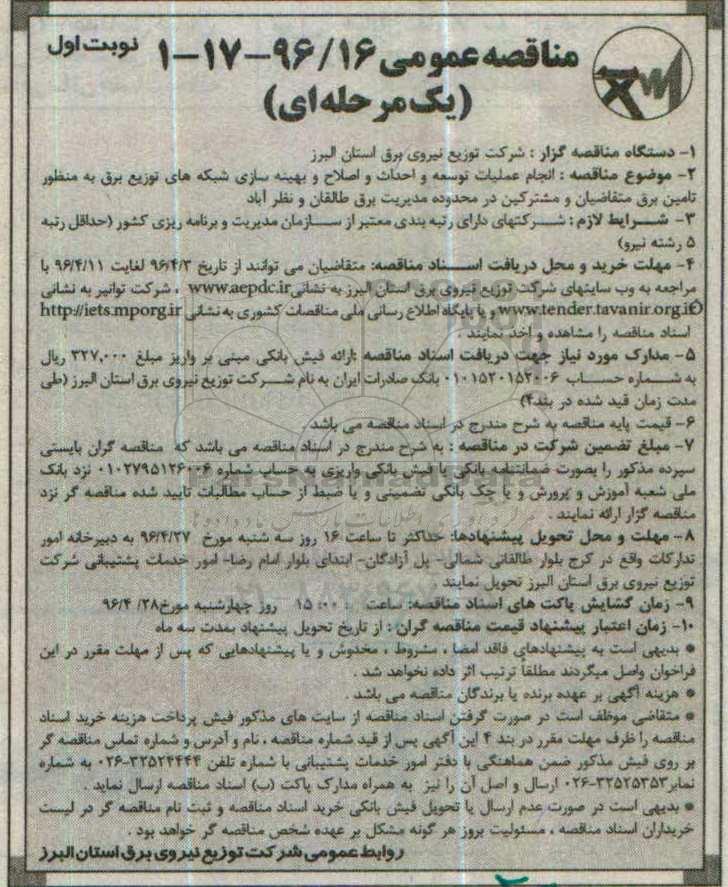 نوبت اول
مناقصه عمومی ۹۶/۱۶-۱۷-۱
(یک مرحله ای)
۱- دستگاه مناقصه گزار : شرکت توزیع نیروی برق استان البرز
۲- موضوع مناقصه : انجام عملیات توسعه و احداث و اصلاح و بهینه سازی شبکه های توزیع برق به منظور
تامین برق متقاضیان و مشترکین در محدوده مدیریت برق طالقان و نظر آباد
۳- شرایط لازم : شرکتهای دارای رتبه بندی معتبر از سازمان مدیریت و برنامه ریزی کشور (حداقل رتبه
۵ رشته نیرو)
۴- مهلت خرید و محل دریافت اسناد مناقصه: متقاضیان می توانند از تاریخ ۹۶/۴/۳ لغایت ۹۶/۴/۱۱ با
مراجعه به وب سایتهای شرکت توزیع نیروی برق استان البرز به نشانی www.aepdc.ir ، شرکت توانیر به نشانی
www.tender.tavanir.org.ir و یا پایگاه اطلاع رسانی ملی مناقصات کشوری به نشانی http://iets.mporg.ir
اسناد مناقصه را مشاهده و اخذ نمایند .
۵- مدارک مورد نیاز جهت دریافت اسناد مناقصه :ارائه فیش بانکی مبنی بر واریز مبلغ ۳۲۷,۰۰۰ ریال
به شماره حساب ۰۱۰۱۵۲۰۱۵۲۰۰۶ بانک صادرات ایران به نام شرکت توزیع نیروی برق استان البرز (طی
مدت زمان قید شده در بند۴)
۶- قیمت پایه مناقصه به شرح مندرج در اسناد مناقصه می باشد .
۷- مبلغ تضمین شرکت در مناقصه : به شرح مندرج در اسناد مناقصه می باشد که مناقصه گران بایستی
سپرده مذکور را بصورت ضمانتنامه بانکی یا فیش بانکی واریزی به حساب شماره ۰۱۰۲۷۹۵۱۲۶۰۰۶ نزد بانک
ملی شعبه آموزش و پرورش و یا چک بانکی تضمینی و یا ضبط از حساب مطالبات تایید شده مناقصه گر نزد
مناقصه گزار ارائه نمایند .
۸- مهلت و محل تحویل پیشنهادها: حداکثر تا ساعت ۱۶ روز سه شنبه مورخ ۹۶/۴/۲۷ به دبیرخانه امور
تدارکات واقع در کرج بلوار طالقانی شمالی- پل آزادگان- ابتدای بلوار امام رضا- امور خدمات پشتیبانی شرکت
توزیع نیروی برق استان البرز تحویل نمایند .
۹- زمان گشایش پاکت های اسناد مناقصه: ساعت ۱۵:۰۰ روز چهارشنبه مورخ۹۶/۴/۲۸
۱۰- زمان اعتبار پیشنهاد قیمت مناقصه گران : از تاریخ تحویل پیشنهاد بمدت سه ماه
* بدیهی است به پیشنهادهای فاقد امضا ، مشروط ، مخدوش و یا پیشنهادهایی که پس از مهلت مقرر در این
فراخوان واصل میگردند مطلقاً ترتیب اثر داده نخواهد شد .
* هزینه آگهی بر عهده برنده یا برندگان مناقصه می باشد .
* متقاضی موظف است در صورت گرفتن اسناد مناقصه از سایت های مذکور فیش پرداخت هزینه خرید اسناد
مناقصه را ظرف مهلت مقرر در بند ۴ این آگهی پس از قید شماره مناقصه ، نام و آدرس و شماره تماس مناقصه گر
بر روی فیش مذکور ضمن هماهنگی با دفتر امور خدمات پشتیبانی با شماره تلفن ۳۲۵۲۴۴۴۴-۰۲۶ به شماره
نمابر۳۲۵۲۵۳۵۳-۰۲۶ ارسال و اصل آن را نیز به همراه مدارک پاکت (ب) اسناد مناقصه ارسال نماید .
* بدیهی است در صورت عدم ارسال یا تحویل فیش بانکی خرید اسناد مناقصه و ثبت نام مناقصه گر در لیست
خریداران اسناد مناقصه ، مسئولیت بروز هر گونه مشکل بر عهده شخص مناقصه گر خواهد بود .
روابط عمومی شرکت توزیع نیروی برق استان البرز